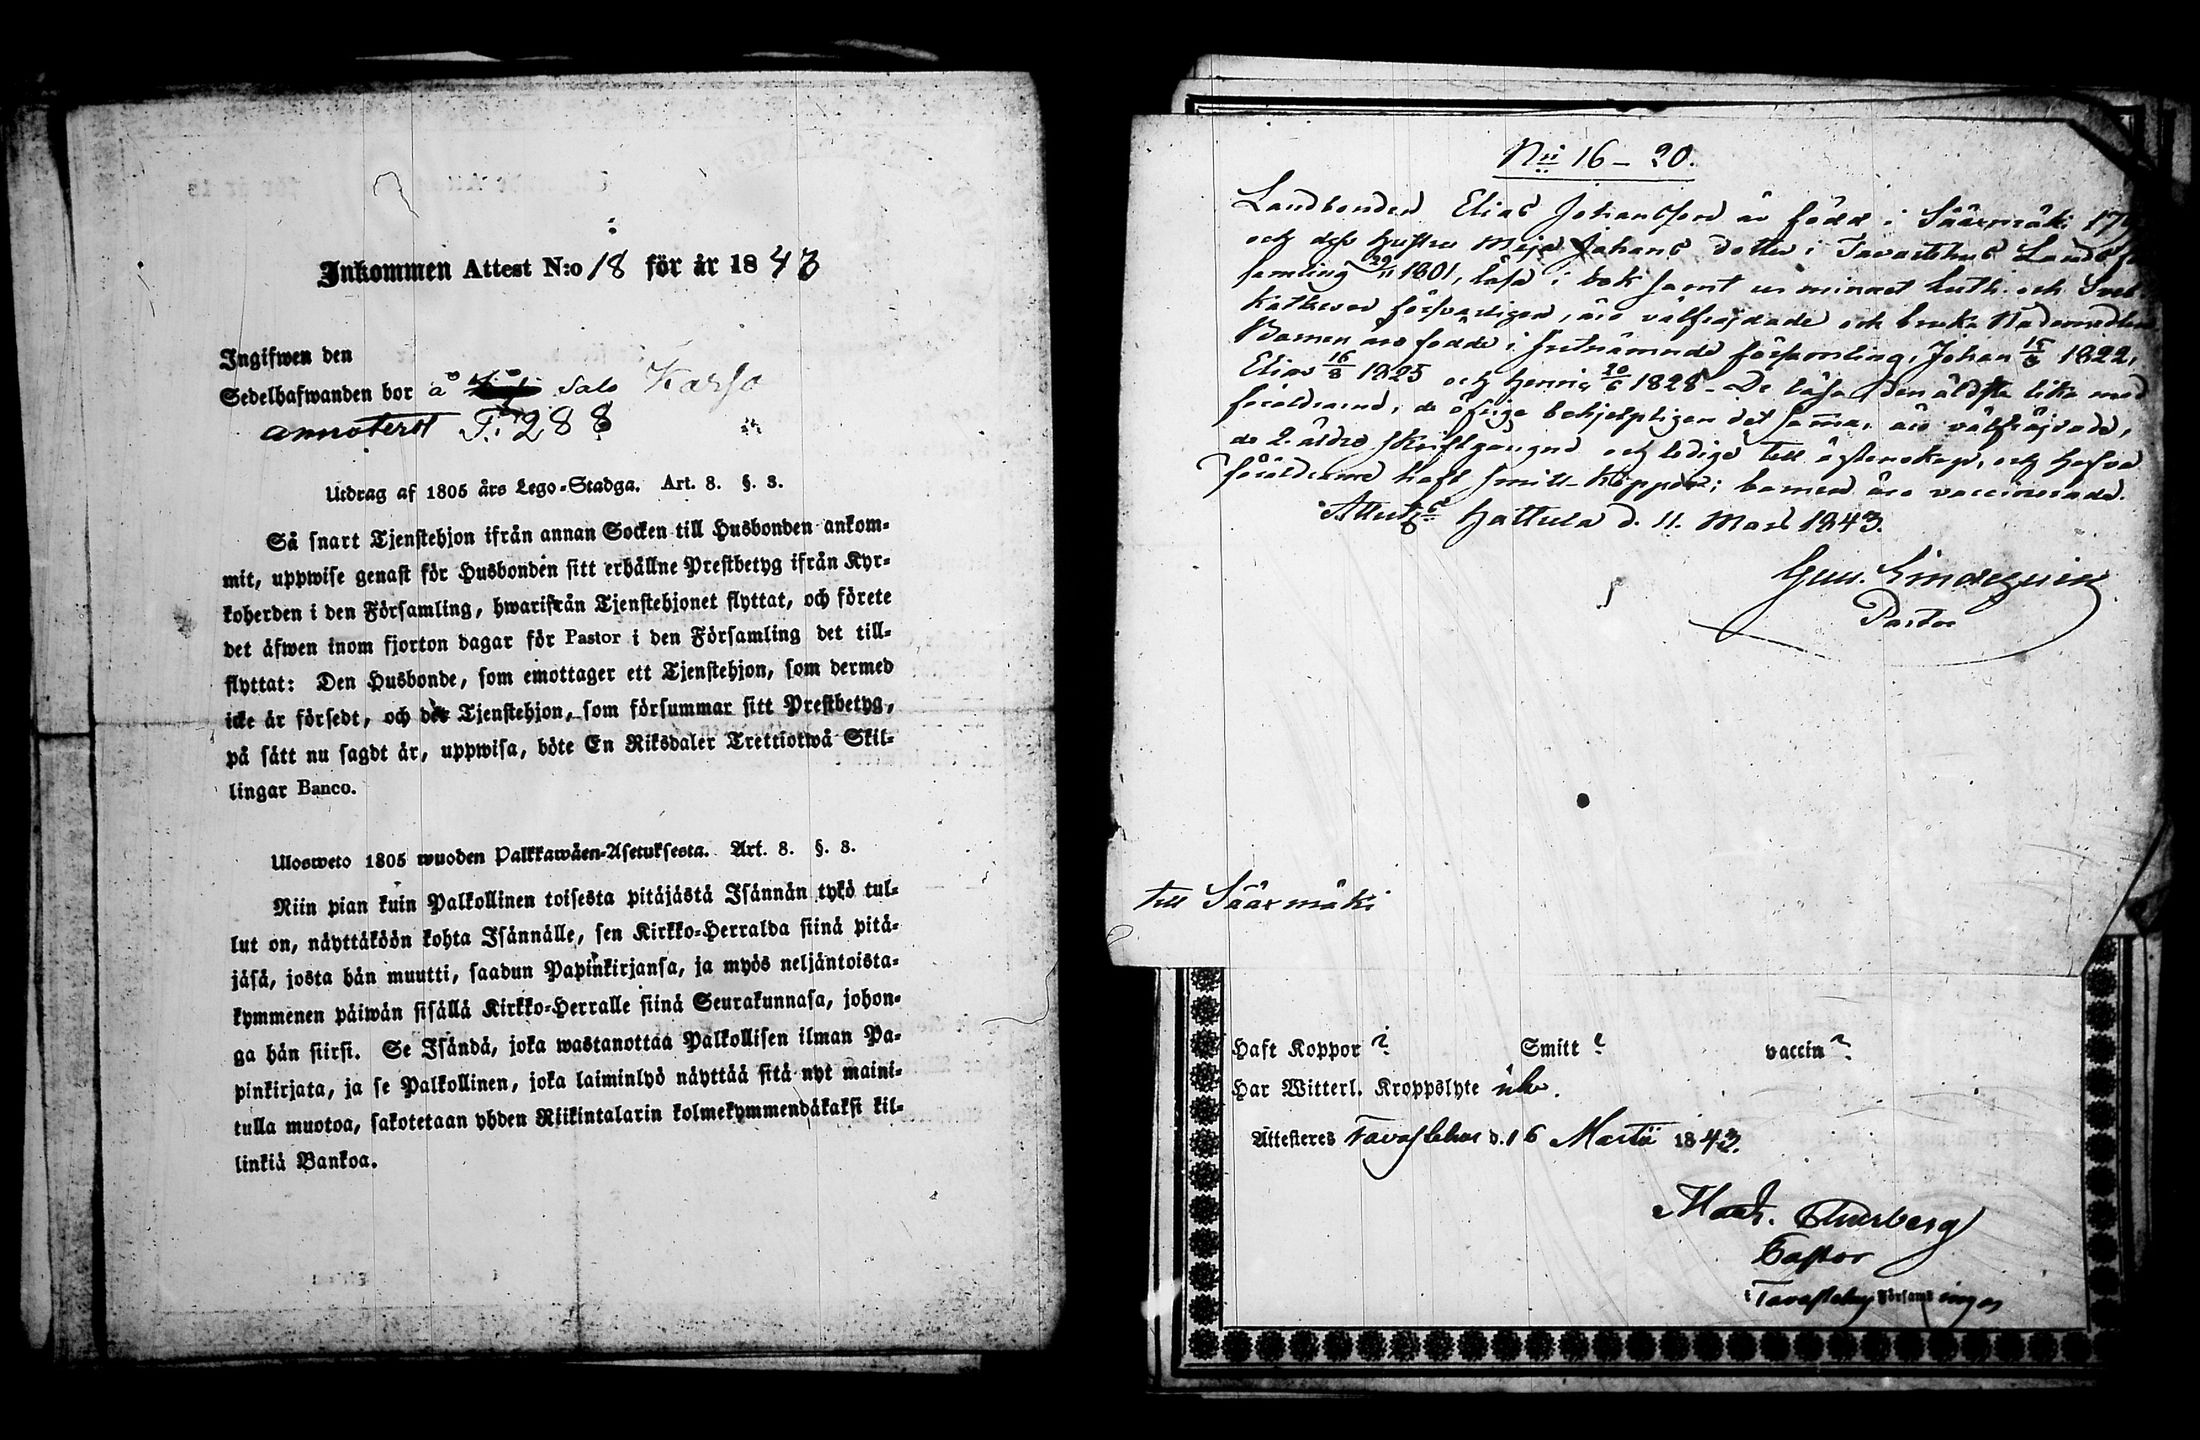 Inkommen Attest N:o 18 för år 1843
Ingifwen den
Sedelhafwanden bor å Salo Karso
annoterat P. 288
Utdrag af 1805 års Lego-Stadga. Art. 8. §. 3.
Så snart Tjenstehjon ifrån annan Socken till Husbonden ankom-
mit, uppwise genast för Husbonden sitt erhållne Prestbetyg ifrån Kyr-
koherden i den Församling, hwarifrån Tjenstehjonet flyttat, och förete
det äfwen inom fjorton dagar för Pastor i den Församling det till-
flyttat: Den Husbonde, som emottager ett Tjenstehjon, som dermed
icke är försedt, och det Tjenstehjon, som försummar sitt Prestbetyg,
på sätt nu sagdt är, uppwisa, böte En Riksdaler Trettiotwå Skil-
lingar Banco.
Ulosweto 1805 wuoden Palkkawäen-Asetuksesta. Art. 8. §. 3.
Niin pian kuin Palkollinen toisesta pitäjästä Isännän tykö tul-
lut on, näyttäköön kohta Isännälle, sen Kirkko-Herralda siinä pitä-
jäsä, josta hän muutti, saadun Papinkirjansa, ja myös neljäntoista-
kymmenen päiwän sisällä Kirkko-Herralle siinä Seurakunnasa, johon-
ga hän siirsi. Se Isändä, joka wastanottaa Palkollisen ilman Pa-
pinkirjata, ja se Palkollinen, joka laiminlyö näyttää sitä nyt maini-
tulla muotoa, sakotetaan yhden Riikintalarin kolmekymmendäkaksi kil-
linkiä Bankoa.
Nii 16-20.
Landbonden Elias Johansson är född i Sääxmäki
och dess hustru Maja Johans dotter i Tavastehus Lands
samling 29/11 1801, läsa i bok samt ur minnet Luth. och Sveb.
Katheser försvarligen, äro välfrejdade och bruka Nademedlen
Barnen äro födde i sistnämnde församling, Johan 15/3 1822,
Elias 16/8 1825 och Henric 20/6 1828 - De läsa, den äldste lika med
föräldrarne, de öfrige behjelpligen det samma, äro välfrägdade,
de 2 äldre skriftgångne och ledige till ägtenskap, och hafva
föräldrarne haft smitt-koppor; barnen äro vaccinerade.
Hattula d. 11. Mars 1843.
Pastor
till Sääxmäki
Haft Koppor ? Smitt ? vaccin ?
Har Witterl. Kroppslyte icke.
Attesteres Tavastehus d. 16 Martii 1843.
Pastor
i Tavastehus Församlingar